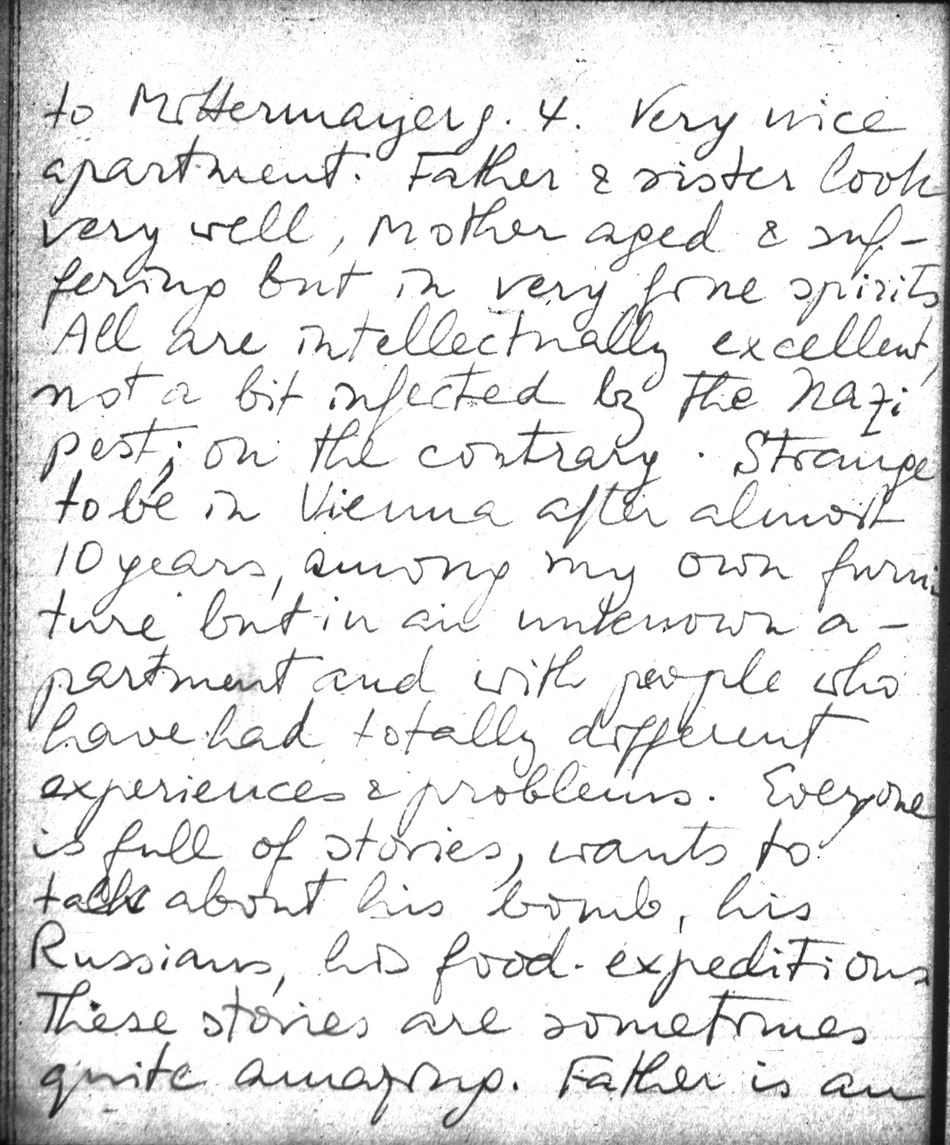 to Mittermayerg. 4. Very nice
apartment. Father & sister look
very well, Mother aged & suf-
fering but in very fine spirits
All are intellectually excellent,
not a bit infected by the Nazi
pest; on the contrary. Strange
to be in Vienna after almost
10 years, among my own furni
ture but in an unknown a-
partment and with people who
have had totally different
experiences & problems. Everyone
is full of stories, wants to
talk about his bomb, his
Russians, his food-expeditions
These stories are sometimes
quite amazing. Father is an